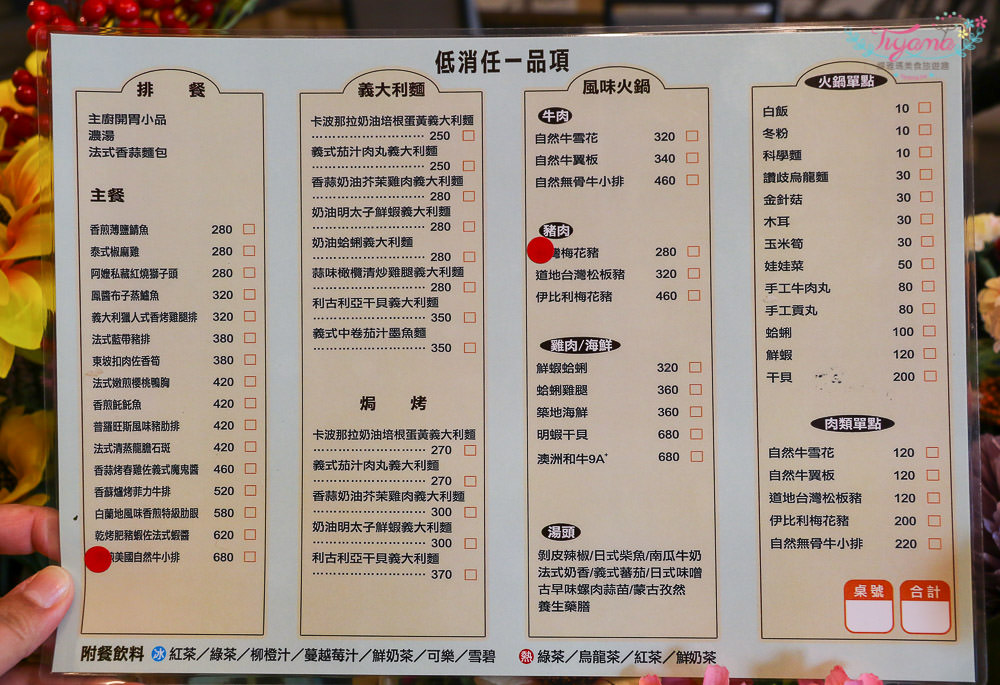 Tiyama
低消任一品項
排 餐
主廚開胃小品
濃湯
法式香蒜麵包
主餐
香煎薄鹽鯖魚 280 □
泰式椒麻雞 280 □
阿嬤私藏紅燒獅子頭 280 □
鳳醬布子蒸鱸魚 320 □
義大利獵人式香烤雞腿排 320 □
法式藍帶豬排 380 □
東坡扣肉佐香筍 380 □
法式嫩煎櫻桃鴨胸 420 □
香煎魠魠魚 420 □
普羅旺斯風味豬肋排 420 □
法式清蒸龍膽石斑 420 □
香蒜烤春雞佐義式魔鬼醬 460 □
香蘇爐烤菲力牛排 520 □
白蘭地風味香煎特級肋眼 580 □
乾烤肥豬蝦佐法式蝦醬 620 □
美國自然牛小排 680 □
義大利麵
卡波那拉奶油培根蛋黃義大利麵
250 □
義式茄汁肉丸義大利麵
250 □
香蒜奶油芥茉雞肉義大利麵
280 □
奶油明太子鮮蝦義大利麵
280 □
奶油蛤蜊義大利麵
280 □
蒜味橄欖清炒雞腿義大利麵
280 □
利古利亞干貝義大利麵
350 □
義式中卷茄汁墨魚麵
350 □
焗 烤
卡波那拉奶油培根蛋黃義大利麵
270 □
義式茄汁肉丸義大利麵
270 □
香蒜奶油芥茉雞肉義大利麵
300 □
奶油明太子鮮蝦義大利麵
300 □
利古利亞干貝義大利麵
370 □
風味火鍋
牛肉
自然牛雪花 320 □
自然牛翼板 340 □
自然無骨牛小排 460 □
豬肉
灣梅花豬 280 □
道地台灣松板豬 320 □
伊比利梅花豬 460 □
雞肉/海鮮
鮮蝦蛤蜊 320 □
蛤蜊雞腿 360 □
築地海鮮 360 □
明蝦干貝 680 □
澳洲和牛9A+ 680 □
湯頭
剝皮辣椒/日式柴魚/南瓜牛奶
法式奶香/義式蕃茄/日式味噌
古早味螺肉蒜苗/蒙古孜然
養生藥膳
火鍋單點
白飯 10 □
冬粉 10 □
科學麵 10 □
讚歧烏龍麵 30 □
金針菇 30 □
木耳 30 □
玉米筍 30 □
娃娃菜 50 □
手工牛肉丸 80 □
手工貢丸 80 □
蛤蜊 100 □
鮮蝦 120 □
干貝 200 □
肉類單點
自然牛雪花 120 □
自然牛翼板 120 □
道地台灣松板豬 120 □
伊比利梅花豬 200 □
自然無骨牛小排 220 □
桌號 合計
附餐飲料 冰 紅茶／綠茶／柳橙汁／蔓越莓汁／鮮奶茶／可樂／雪碧 熱 綠茶／烏龍茶／紅茶／鮮奶茶